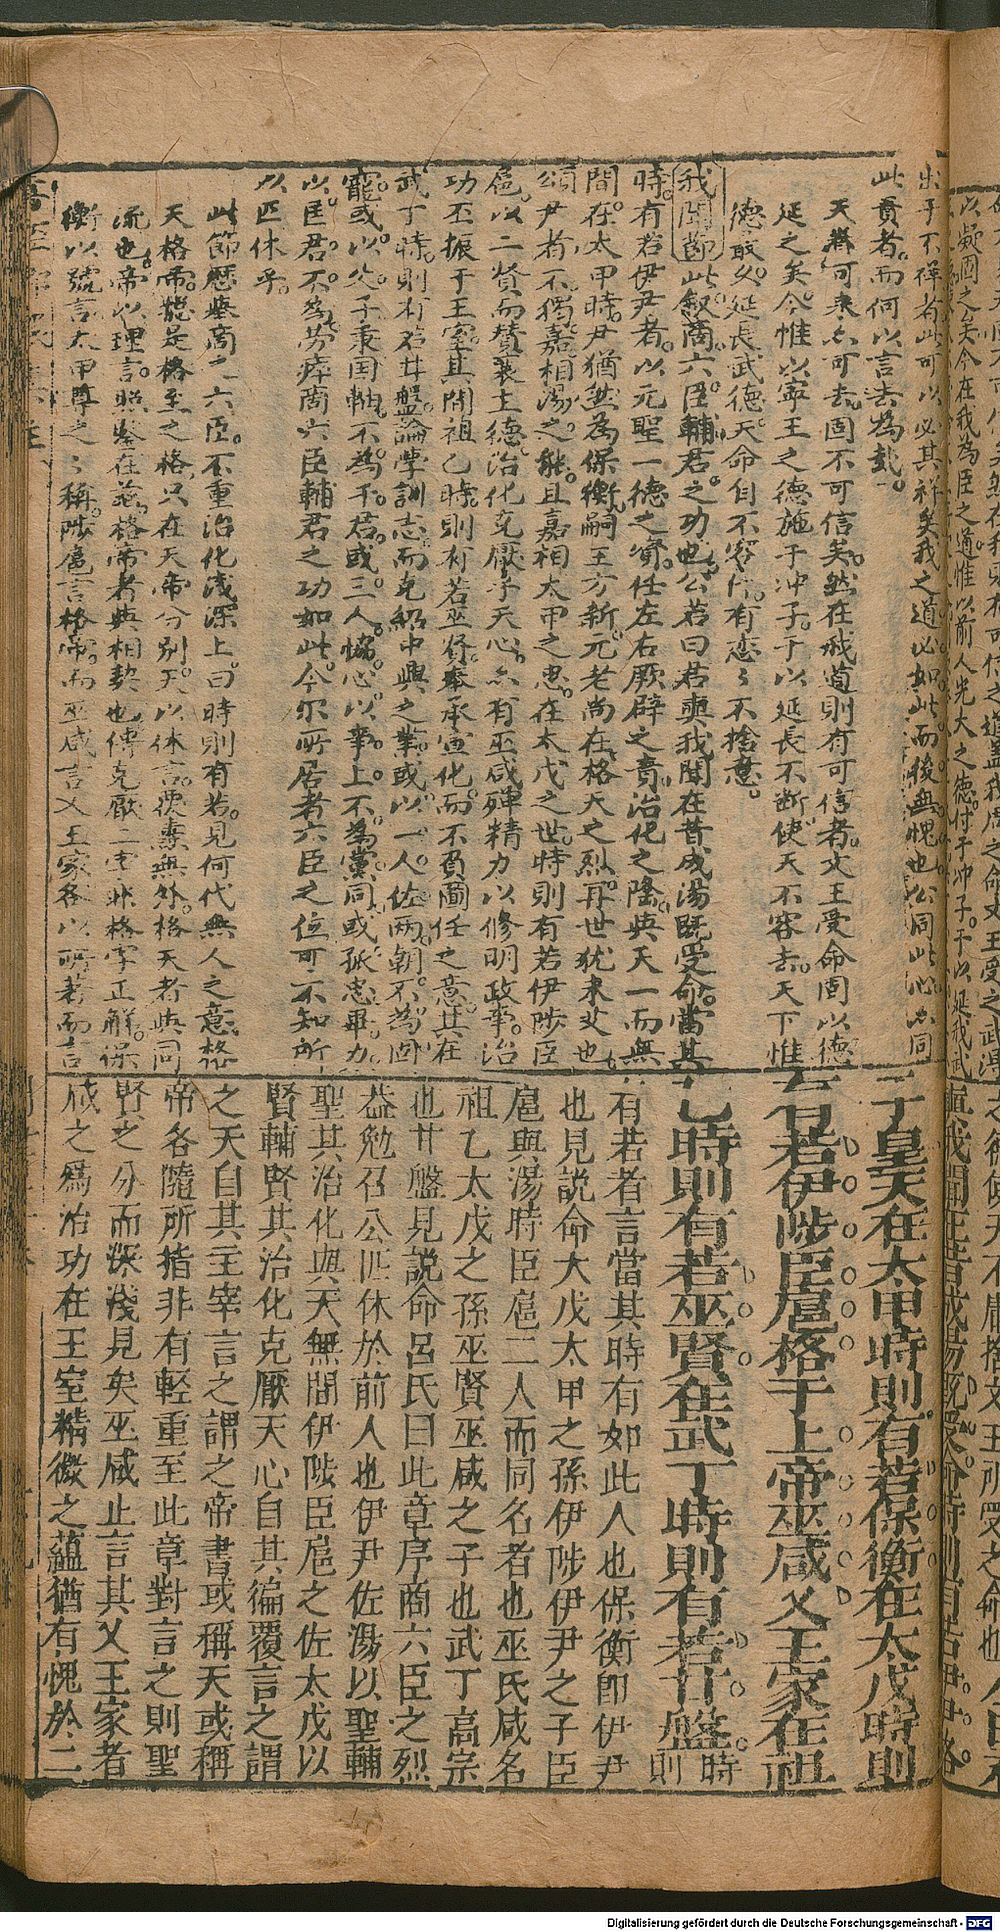 出于不祥者此可以必其祥矣我之道必如此而後無愧也公同此心亦同
此責者而何以言去為哉
天難可乘亦可去固不可信矣然在我道則有可信者文王受命固以德
延之矣今惟以寧王之德施于冲子予以延長不斷使天不容去天下惟
德最久延長武德天命自不容
有恋々不捨意
我聞節此叙商六臣輔君之功也公若曰君奭我聞在昔成湯既受命當其
時有若伊尹者以元聖一德之資任左右厥辟之責治化之隆與天一而無
間在太甲時尹猶然為保衡嗣王方新元老尚在格天之烈再世犹未艾也
頌尹者不獨嘉相湯之能且嘉相太甲之忠在太戊之世時則有若伊陟臣
扈以二賢而贊襄主德治化克厭乎天心亦有巫咸殫精力以修明政事治
功丕振于王室其閒祖乙時則有若巫賢奉承宣化而不負圖任之意其在
武丁時則有若甘盤論學訓志而克紹中興之業或以一人佐兩朝不為固
寵或以父子秉国軸不為干君或三人恊心以事上不為黨同或孤忠畢力
以匡君不為劳瘁商六臣輔君之功如此今尔所居者六臣之位可不知所
以匹休乎
此節歷叙商之六臣不重治化浅深上曰時則有若見何代無人之意格
天格帝總是格至之格只在天帝分別天以体言復燾無外格天者與同
流也帝以理言照鉴在茲格帝者與相契也傳克厭二字非格字正解保
衡以號言太甲尊之之稱陟扈言格帝而巫咸言乂王家各以所著而言
于皇天在太甲時則有若保衡在太戊時則
有若伊陟臣扈格于上帝巫咸乂王家在祖
乙時則有若巫賢在武丁時則有若甘盤
時則
有若者言當其時有如此人也保衡即伊尹
也見説命太戊太甲之孫伊陟伊尹之子臣
扈與湯時臣扈二人而同名者也巫氏咸名
祖乙太戊之孫巫賢巫咸之子也武丁高宗
也甘盤見説命呂氏曰此章序商六臣之烈
葢勉召公匹休於前人也伊尹佐湯以聖輔
聖其治化與天無間伊陟臣扈之佐太戊以
賢輔賢其治化克厭天心自其徧覆言之謂
之天自其主宰言之謂之帝書或稱天或稱
帝各隨所指非有輕重至此章對言之則聖
賢之分而深淺見矣巫咸止言其乂王家者
咸之爲治功在王室精微之蘊猶有愧於二
Digitalisierung gefördert durch die Deutsche Forschungsgemeinschaft - DFG